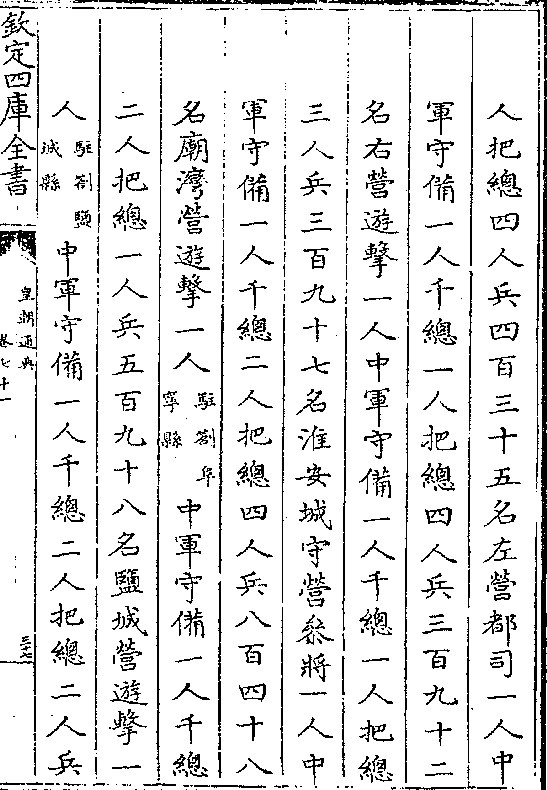 人把總四人兵四百三十五名左營都司一人中
軍守備一人千總一人把總四人兵三百九十二
名右營遊擊一人中軍守備一人千總一人把總
三人兵三百九十七名淮安城守營叅將一人中
軍守備一人千總二人把總四人兵八百四十八
名廟灣營遊擊一人駐劄阜寧縣中軍守備一人千總
二人把總一人兵五百九十八名鹽城營遊擊一
人駐劄鹽城縣中軍守備一人千總二人把總二人兵
欽定四庫全書
皇朝通典
卷七十一
三十七